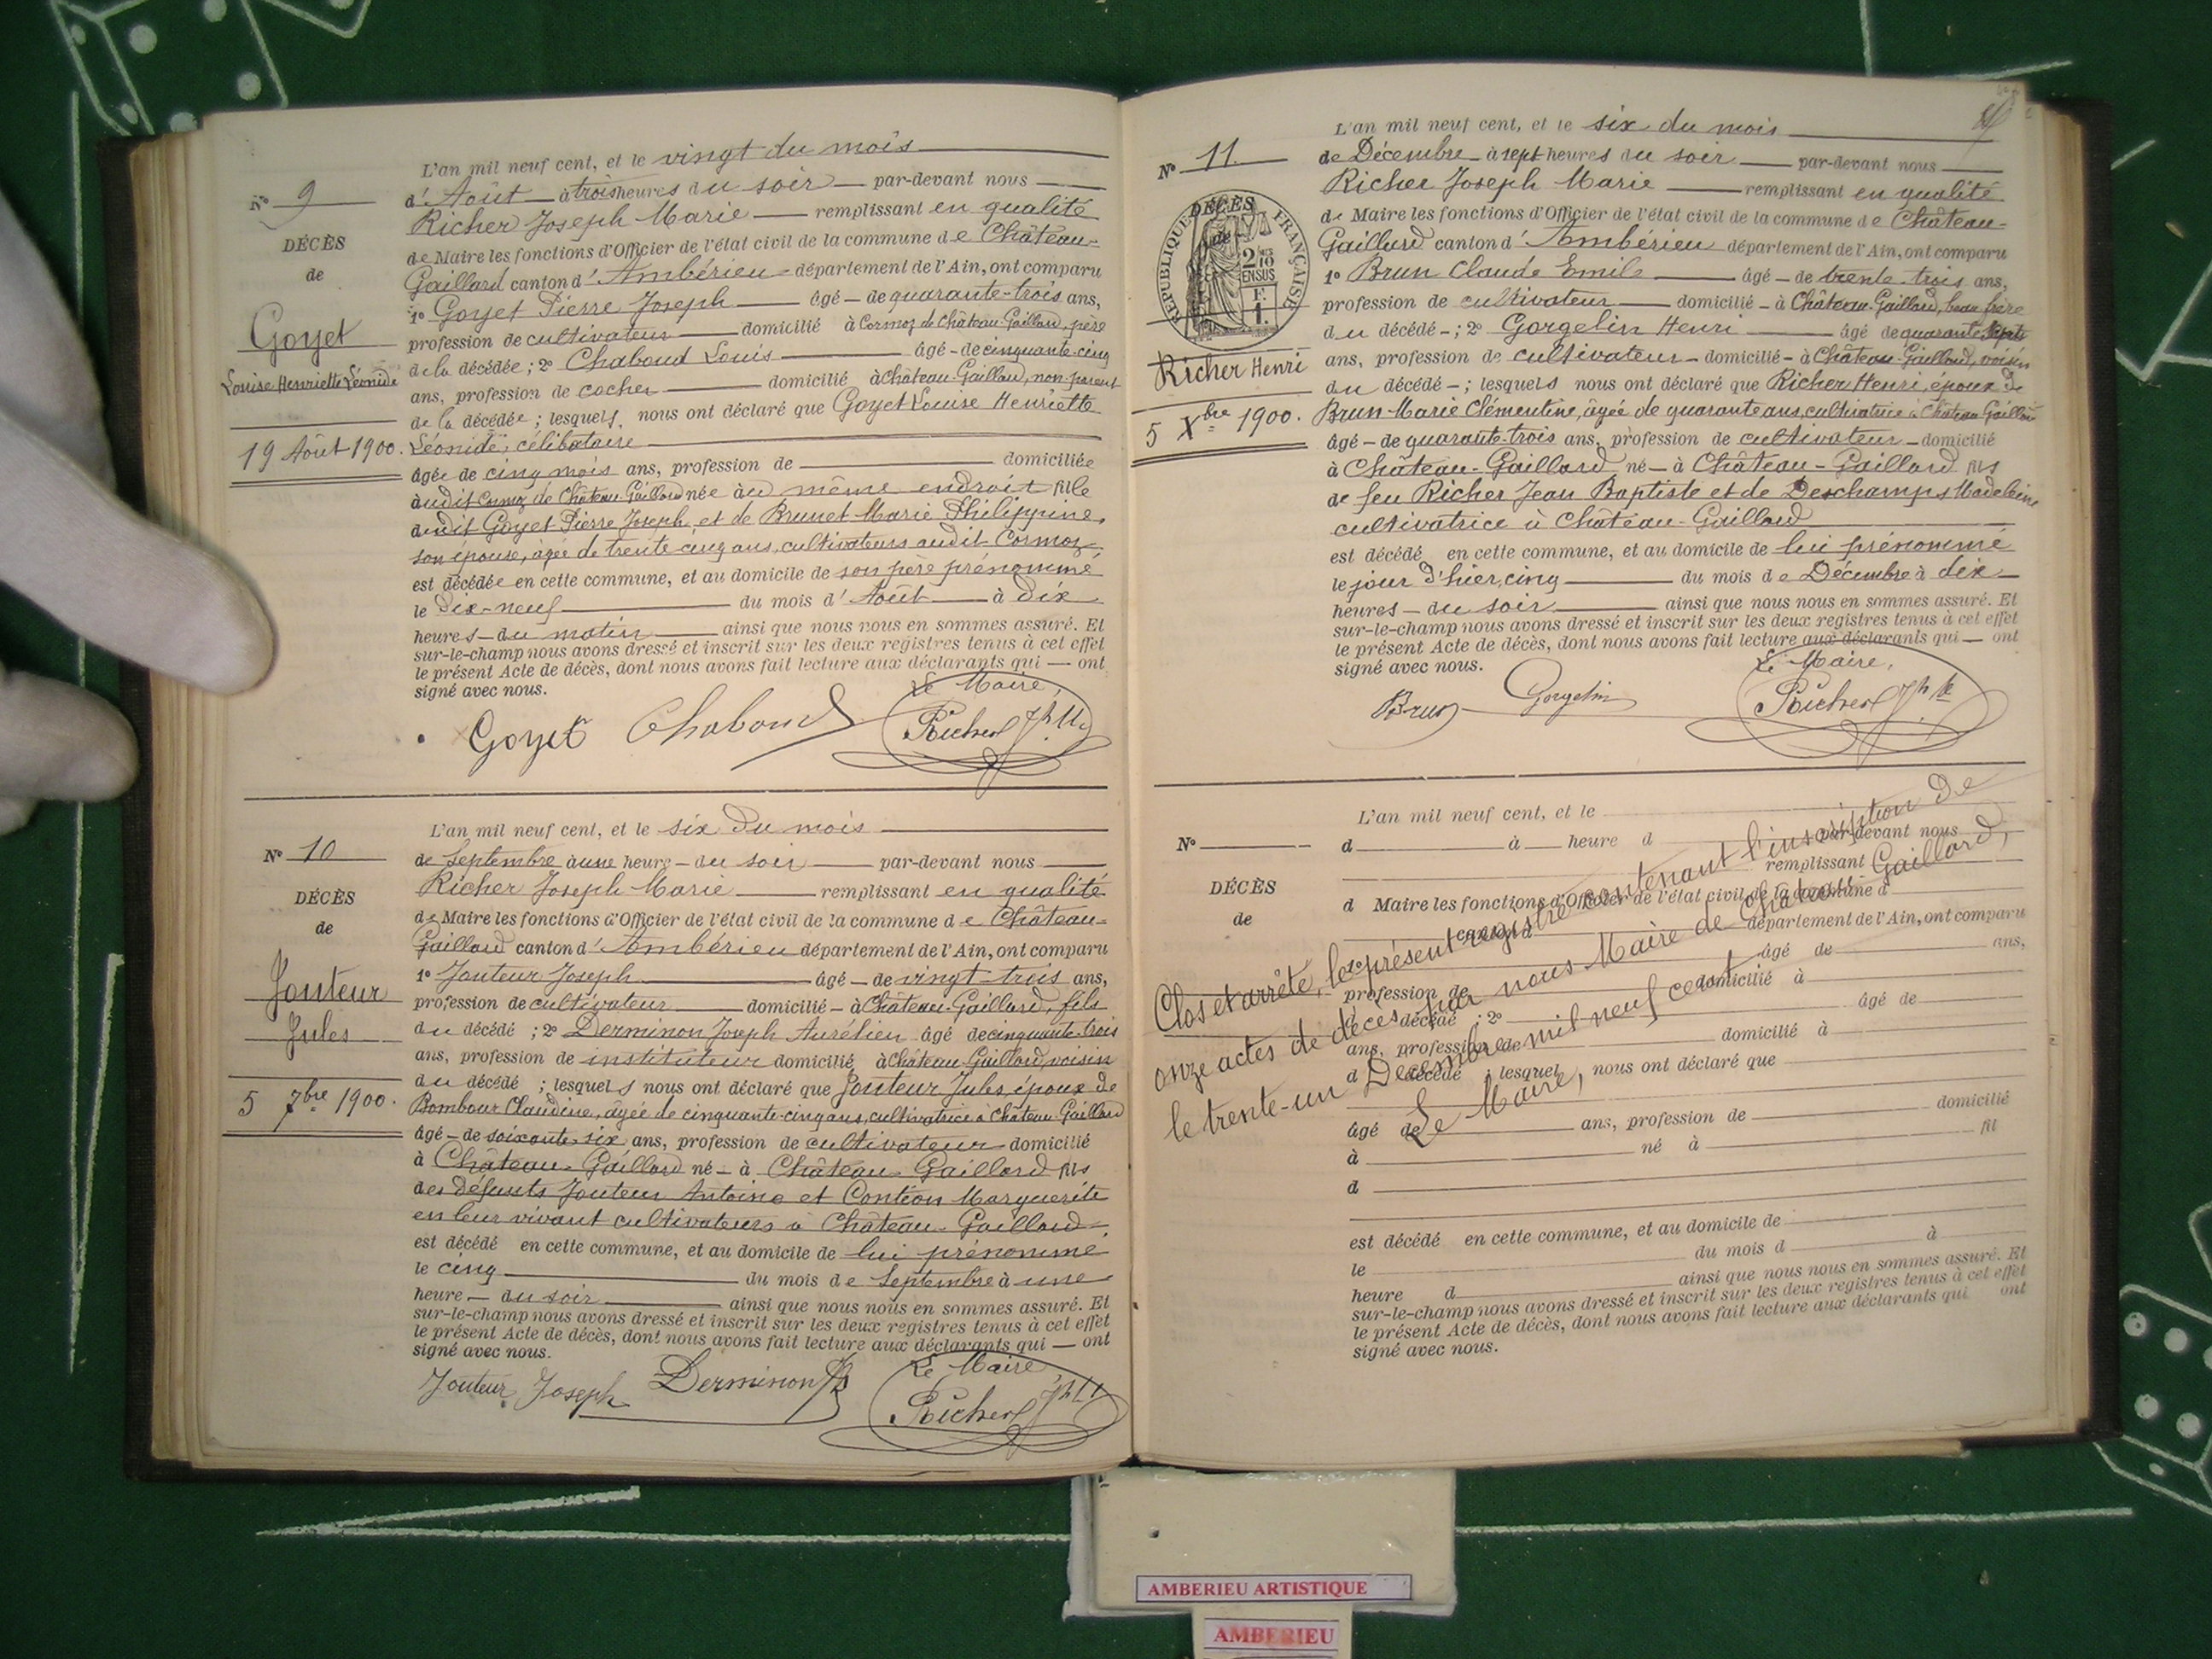 L'an mil neuf cent, et le vingt du mois
N° 9
d'Août à trois heures du soir par-devant nous
Richer Joseph Marie remplissant en qualité
DÉCÈS
de Maire les fonctions d'Officier de l'état civil de la commune de Château-
de
Gaillard canton d'Ambérieu département de l'Ain, ont comparu
1° Goyet Pierre Joseph âgé de quarante-trois ans,
Goyet
profession de cultivateur domicilié à Cormoz de Château-Gaillard, père
Louise Henriette Léonide
de la décédée ; 2° Chaboud Louis âgé de cinquante-cinq
ans, profession de cocher domicilié à Château-Gaillard, non parent
de la décédée ; lesquels nous ont déclaré que Goyet Louise Henriette
19 Août 1900.
Léonide, célibataire
âgée de cinq mois ans, profession de domiciliée
audit Cormoz de Château-Gaillard née au même endroit fille
dudit Goyet Pierre Joseph et de Brunet Marie Philippine,
son épouse, âgée de trente cinq ans, cultivateurs audit Cormoz,
est décédée en cette commune, et au domicile de son père prénommé
le dix-neuf du mois d'Août à dix
heures du matin ainsi que nous nous en sommes assuré. Et
sur-le-champ nous avons dressé et inscrit sur les deux registres tenus à cet effet
le présent Acte de décès, dont nous avons fait lecture aux déclarants qui ont
signé avec nous.
Le Maire,
Goyet Chaboud Richer Jh
L'an mil neuf cent, et le six du mois
N° 10
de Septembre à une heure du soir par-devant nous
Richer Joseph Marie remplissant en qualité
DÉCÈS
de Maire les fonctions d'Officier de l'état civil de la commune de Château-
de
Gaillard canton d'Ambérieu département de l'Ain, ont comparu
1° Jouteur Joseph âgé de vingt-trois ans,
Jouteur
profession de cultivateur domicilié à Château-Gaillard, fils
Jules
du décédé ; 2° Derminon Joseph Aurélien âgé de cinquante-trois
ans, profession de instituteur domicilié à Château-Gaillard, voisin
du décédé ; lesquels nous ont déclaré que Jouteur Jules, époux de
5 7bre 1900.
Bombour Claudine, âgée de cinquante-cinq ans, cultivatrice à Château-Gaillard
âgé de soixante-six ans, profession de cultivateur domicilié
à Château-Gaillard né à Château-Gaillard fils
des défunts Jouteur Antoine et Contion Marguerite
en leur vivant cultivateurs à Château-Gaillard
est décédé en cette commune, et au domicile de lui prénommé
le cinq du mois de Septembre à une
heure du soir ainsi que nous nous en sommes assuré. Et
sur-le-champ nous avons dressé et inscrit sur les deux registres tenus à cet effet
le présent Acte de décès, dont nous avons fait lecture aux déclarants qui ont
signé avec nous.
Le Maire
Jouteur Joseph Derminon Richer Jh
L'an mil neuf cent, et le six du mois
N° 11
de Décembre à sept heures du soir par-devant nous
Richer Joseph Marie remplissant en qualité
DÉCÈS
de Maire les fonctions d'Officier de l'état civil de la commune de Château-
de
RÉPUBLIQUE FRANÇAISE
Gaillard canton d'Ambérieu département de l'Ain, ont comparu
1° Brun Claude Emile âgé de trente-trois ans,
profession de cultivateur domicilié à Château-Gaillard, beau frère
du décédé ; 2° Gorgelin Henri âgé de quarante sept
Richer Henri
ans, profession de cultivateur domicilié à Château-Gaillard, voisin
du décédé ; lesquels nous ont déclaré que Richer Henri, époux de
5 Xbre 1900.
Brun Marie Clémentine, âgée de quarante ans, cultivatrice à Château Gaillard
âgé de quarante-trois ans, profession de cultivateur domicilié
à Château-Gaillard né à Château-Gaillard fils
de feu Richer Jean Baptiste et de Deschamps Madeleine
cultivatrice à Château-Gaillard
est décédé en cette commune, et au domicile de lui prénommé
le jour d'hier, cinq du mois de Décembre à dix
heures du soir ainsi que nous nous en sommes assuré. Et
sur-le-champ nous avons dressé et inscrit sur les deux registres tenus à cet effet
le présent Acte de décès, dont nous avons fait lecture aux déclarants qui ont
signé avec nous.
Le Maire,
Brun Gorgelin Richer Jh
L'an mil neuf cent, et le
N°
d à heure d par-devant nous
remplissant
DÉCÈS
d Maire les fonctions d'Officier de l'état civil de la commune d
de
canton d département de l'Ain, ont comparu
1° âgé de ans,
profession de domicilié à
décédé ; 2° âgé de
ans, profession de domicilié à
d décédé ; lesquel nous ont déclaré que
âgé de ans, profession de domicilié
à né à fil
d
est décédé en cette commune, et au domicile de
le du mois d à
heure d ainsi que nous nous en sommes assuré. Et
sur-le-champ nous avons dressé et inscrit sur les deux registres tenus à cet effet
le présent Acte de décès, dont nous avons fait lecture aux déclarants qui ont
signé avec nous.
Clos et arrêté, le présent registre contenant l'inscription de
onze actes de décès par nous Maire de Château-Gaillard,
le trente-un Décembre mil neuf cent
Le Maire,
AMBERIEU ARTISTIQUE
AMBERIEU